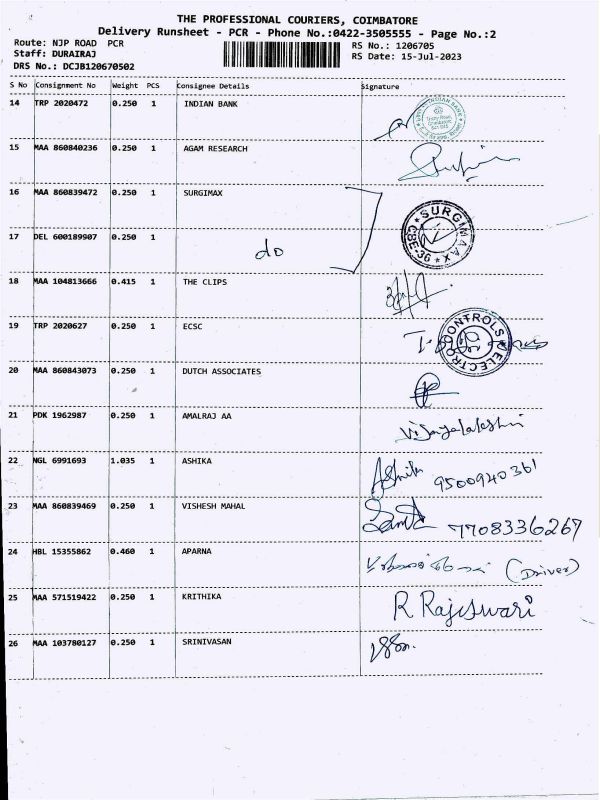 THE PROFESSIONAL COURIERS, COIMBATORE
Delivery Runsheet - PCR - Phone No.:0422-3505555 - Page No.:2
Route: NJP ROAD PCR
RS No.: 1206705
Staff: DURAIRAJ
RS Date: 15-Jul-2023
DRS No.: DCJB120670502
S No Consignment No Weight PCS Consignee Details Signature
14 TRP 2020472 0.250 1 INDIAN BANK
INDIAN BANK
15 MAA 860840236 0.250 1 AGAM RESEARCH
16 MAA 860839472 0.250 1 SURGIMAX
SURGIMAX
CBE-36
17 DEL 600189907 0.250 1 do
18 MAA 104813666 0.415 1 THE CLIPS
19 TRP 2020627 0.250 1 ECSC
ELECTRO CONTROLS
20 MAA 860843073 0.250 1 DUTCH ASSOCIATES
21 PDK 1962987 0.250 1 AMALRAJ AA Vijayalakshmi
22 NGL 6991693 1.035 1 ASHIKA Ashik 9500940361
23 MAA 860839469 0.250 1 VISHESH MAHAL 7708336267
24 HBL 15355862 0.460 1 APARNA (Driver)
25 MAA 571519422 0.250 1 KRITHIKA R Rajeswari
26 MAA 103780127 0.250 1 SRINIVASAN